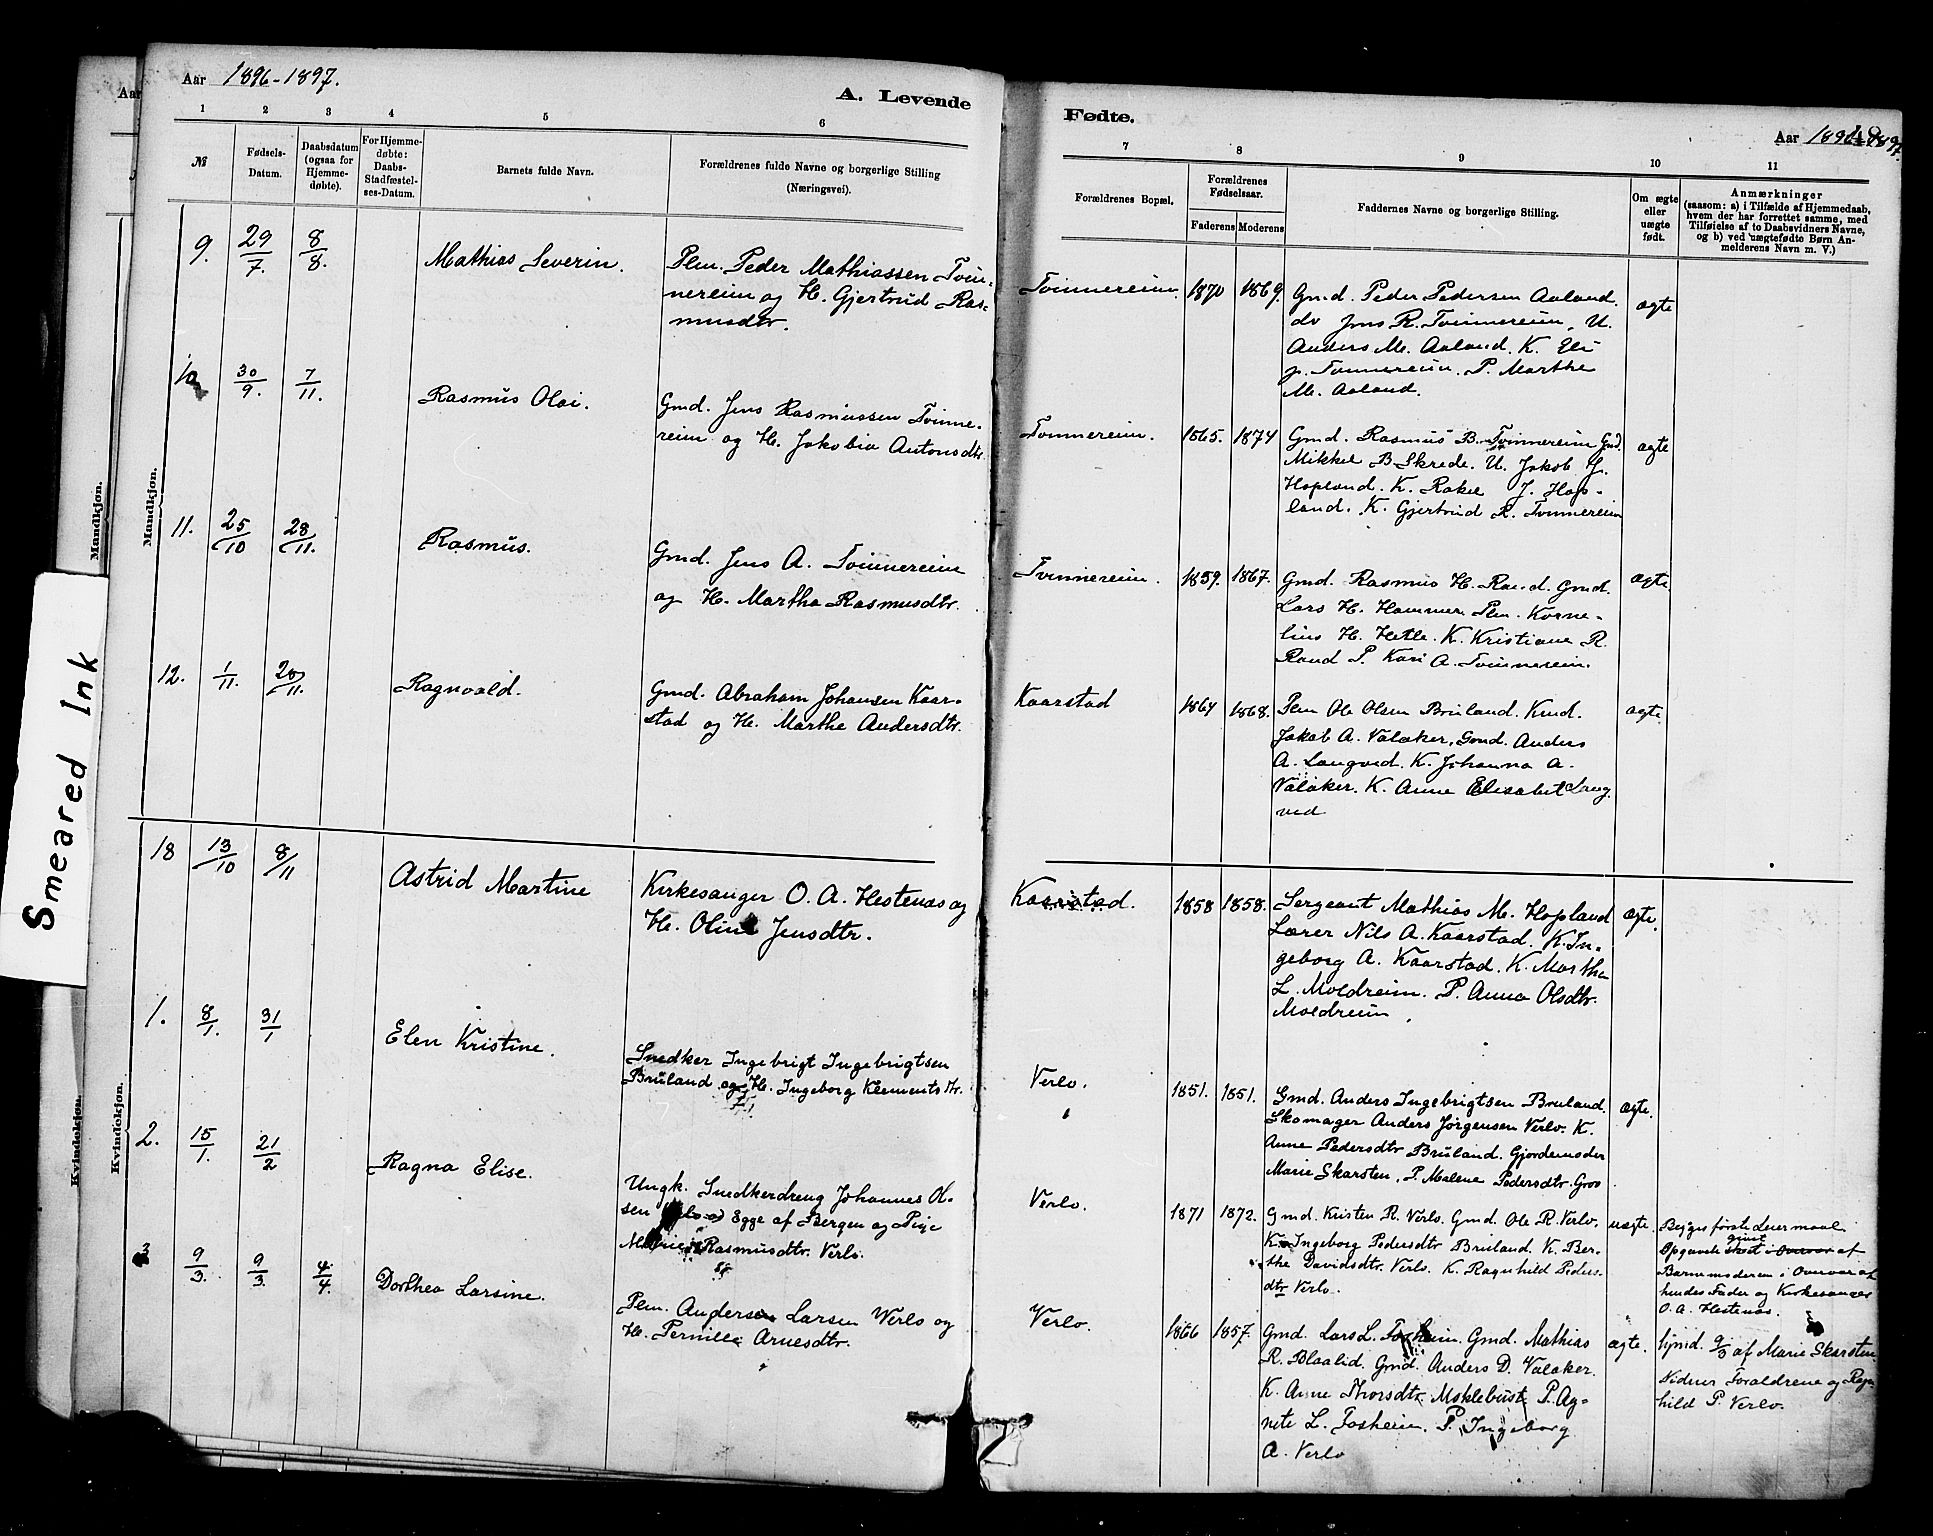 Smeared Ink
Aar
Aar 1896-1897.
A. Levende
Fødte.
Aar
1 2 3 4 5 6
7 8 9 10 11
№
Fødsels-
Datum.
Daabsdatum
(ogsaa for
Hjemme-
døbte).
For Hjemme-
døbte:
Daabs-
Stadfæstel-
ses-Datum.
Barnets fulde Navn.
Forældrenes fulde Navne og borgerlige Stilling
(Næringsvei).
Forældrenes Bopæl.
Forældrenes
Fødselsaar.
Faderens Moderens
Faddernes Navne og borgerlige Stilling.
Om ægte
eller
uægte
født.
Anmærkninger
(saasom: a) i Tilfælde af Hjemmedaab,
hvem der har forrettet samme, med
Tilføielse af to Daabsvidners Navne,
og b) ved uægtefødte Børn An-
melderens Navn m. V.)
Mandkjøn.
Mandkjøn.
Kvindekjøn.
Kvindekjøn.
9. 29/7. 8/8. Mathias Severin.
Plm. Peder Mathiassen Tvin-
nereim og H. Gjertrud Ras-
musdtr.
Tvinnereim. 1870 1869.
Gmd. Peder Pedersen Aaland.
do Jens R. Tvinnereim, U.
Anders M. Aaland. K. Eli
J. Tvinnereim. P. Marthe
M. Aaland.
ægte
10 30/9. 7/11. Rasmus Olai.
Gmd. Jens Rasmussen Tvinne-
reim og H. Jakobia Antonsdtr.
Tvinnereim. 1865. 1874
Gmd. Rasmus B. Tvinnereim Gmd.
Mikkel B Skrede. U. Jakob J.
Hopland. K. Rakel J. Hop-
land. K. Gjertrud R. Tvinnereim
ægte
11. 25/10 28/11. Rasmus.
Gmd. Jens A. Tvinnereim
og H. Martha Rasmusdtr.
Tvinnereim. 1859. 1867.
Gmd. Rasmus H. Rand. Gmd.
Lars H. Hammer. Plm. Korne-
lius H. Hetle. K. Kristiane R.
Rand P. Kari A. Tvinnereim.
ægte
12. 1/11. 28/11. Ragnvald.
Gmd. Abraham Johansen Kaar-
stad og H. Marthe Andersdtr.
Kaarstad 1864 1868.
Plm Ole Olsen Bruland. Kmd.
Jakob A. Valaker, Gmd. Anders
A. Langved. K. Johanna A.
Valaker. K. Anne Elisabet Lang
ved
ægte
18 13/10 8/11 Astrid Martine
Kirkesanger O. A. Hestenæs og
H. Oline Jensdtr.
Kaarstad. 1858 1858.
Sergeant Mathias M. Hopland
Lærer Nils A. Kaarstad. K. In-
geborg A. Kaarstad. K. Martha
L. Moldreim. P. Anna Olsdtr.
Moldreim
ægte.
1. 8/1. 31/1 Elen Kristine.
Snedker Ingebrigt Ingebrigtsen
Bruland og H. Ingeborg Klementsdtr.
Verlo. 1851. 1851.
Gmd. Anders Ingebrigtsen Bruland.
Skomager Anders Jørgensen Verlo. K.
Anne Pedersdtr Bruland. Gjordemoder
Marie Skarsten, P. Malene Pedersdtr. Gros
ægte.
2. 15/1. 21/2 Ragna Elise.
Ungk. Snedkerdreng Johannes Ol-
sen Egge af Bergen og Pige
Marie Rasmusdtr. Verlo.
Verlo. 1871 1872.
Gmd. Kristen R. Verlo. Gmd. Ole R. Verlo.
K. Ingeborg Pedersdtr Bruland. K. Ber-
the Davidsdtr. Verlo. K. Ragnhild Peders-
dtr Verlo.
uægte.
Begges første Leiermaal
givet
Opgavede af
Barnemoderen i Overvær af
hendes Fader og Kirkesanger
O. A. Hestenæs.
3 9/3. 9/3. 4/4. Dorthea Larsine.
Plm. Andersen Larsen Verlo og
H. Pernille Arnesdtr.
Verlo. 1866 1857.
Gmd. Lars L. Fosheim. Gmd. Mathias
R. Blaalid. Gmd. Anders D. Valaker.
K. Anne Thorsdtr Myklebust P. Ag-
nete L. Fosheim. P. Ingeborg
A. Verlo
ægte.
hjmd. 9/3 af Marie Skarsten
Vidner Forældrene og Ragn-
hild P. Verlo.